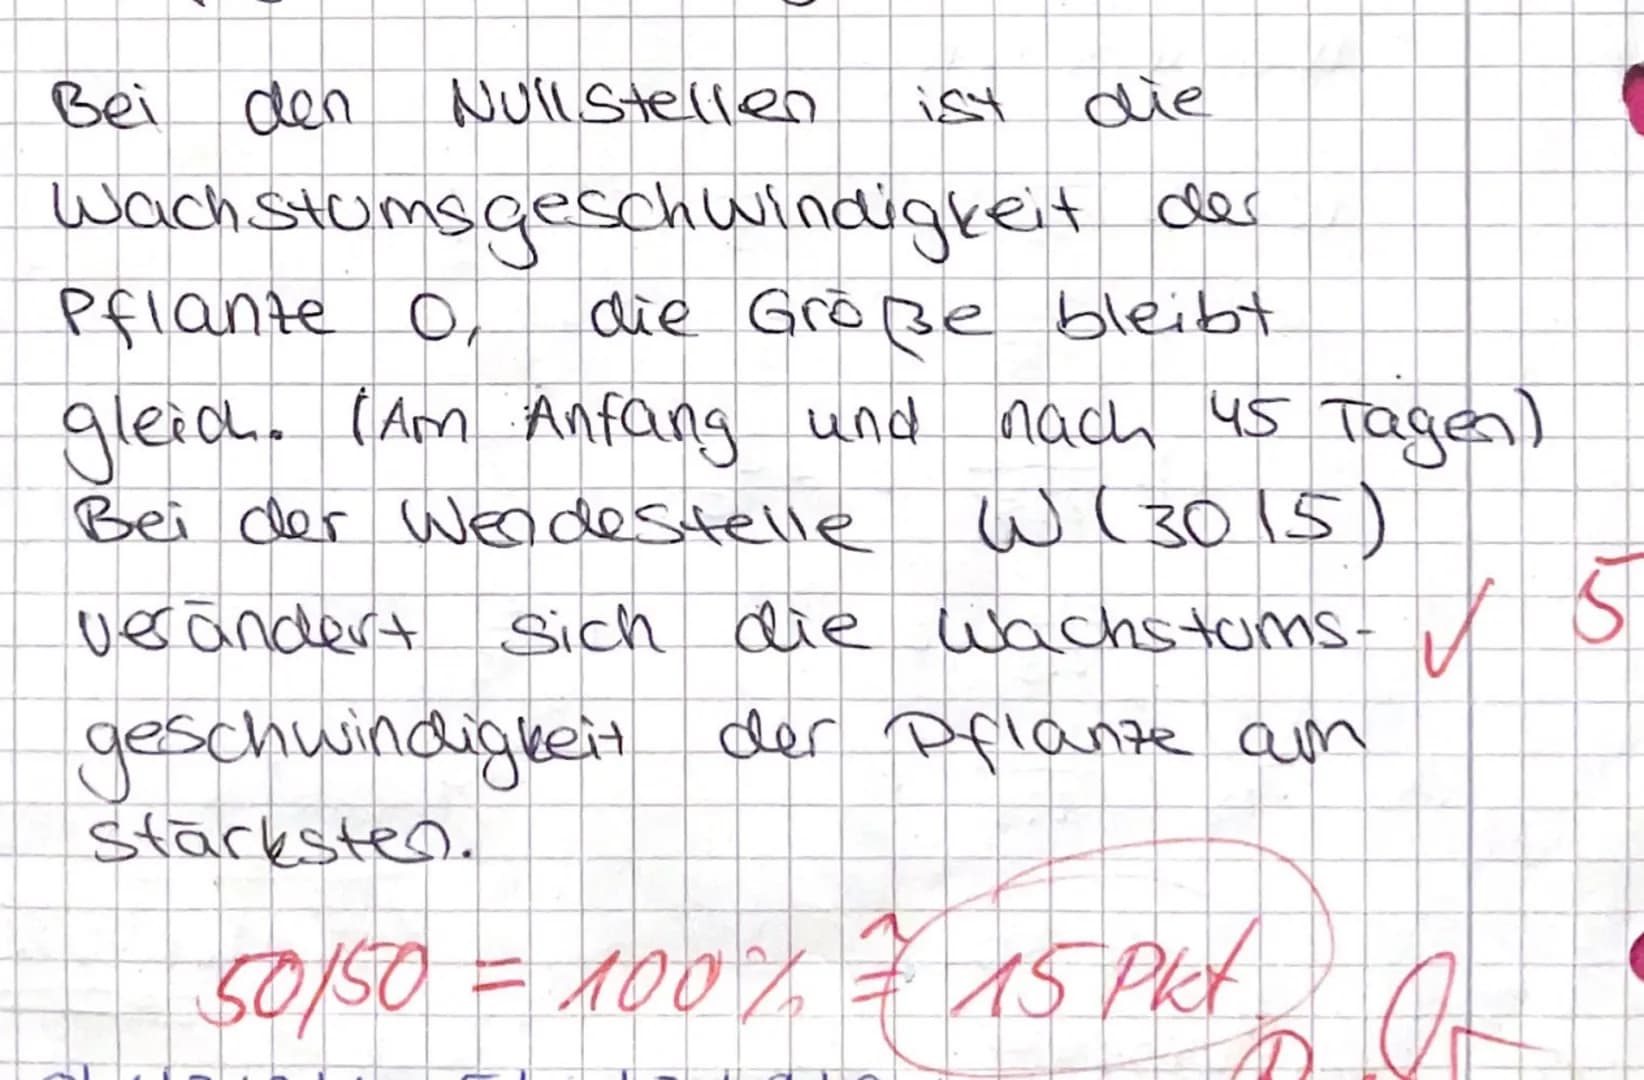 Bei den Nullstellen ist die
Wachstumsgeschwindigkeit der
Pflanze 0, die Größe bleibt
gleich. (Am Anfang und nach 45 Tagen)
Bei der Wendestelle W(30|5)
verändert sich die Wachstums- ✓ 5
geschwindigkeit der Pflanze am
stärksten.
50/50 = 100% ≙ 15 Pkt